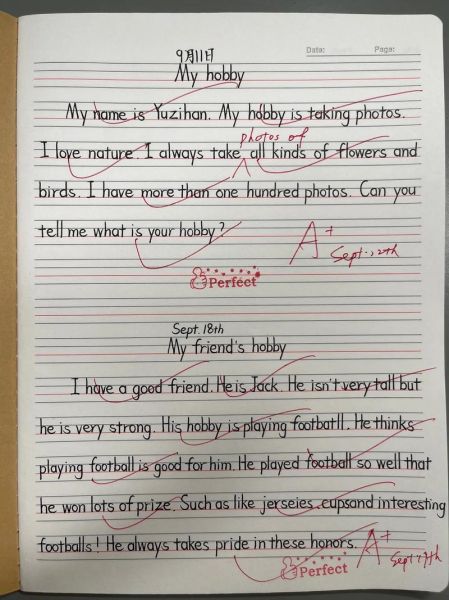 Date: Page:
9月11日
My hobby
My name is Yuzihan. My hobby is taking photos.
photos of
I love nature. I always take all kinds of flowers and
birds. I have more than one hundred photos. Can you
tell me what is your hobby?
A+
Sept. 12th
Perfect
Sept. 18th
My friend's hobby
I have a good friend. He is Jack. He isn't very tall but
he is very strong. His hobby is playing footbatll. He thinks
playing football is good for him. He played football so well that
he won lots of prize. Such as like jerseies, cupsand interesting
footballs! He always takes pride in these honors.
A+
Sept. 19th
Perfect